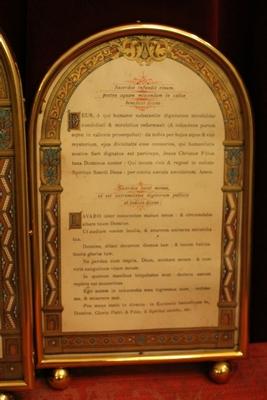 Sacerdos infundit vinum
postea aquam miscendam in calice
benedicit dicens
DEUS, ✠ qui humanæ substantiæ dignitatem mirabiliter
condidisti & mirabilius reformasti da nobis per hujus aquæ & vini
mysterium, ejus divinitatis esse consortes, qui humanitatis
nostræ fieri dignatus est particeps, Jesus Christus Filius
tuus Dominus noster: Qui tecum vivit & regnat in unitate
Spiritus Sancti Deus: per omnia sæcula sæculorum. Amen.
Sacerdos lavat manus,
LAVABO inter innocentes manus meas: & circumdabo
altare tuum Domine.
Ut audiam vocem laudis, & enarrem universa mirabilia
tua.
Domine, dilexi decorem domus tuæ: & locum habita-
tionis gloriæ tuæ.
Ne perdas cum impiis, Deus, animam meam: & cum
viris sanguinum vitam meam.
In quorum manibus iniquitates sunt: dextera eorum
repleta est muneribus.
Ego autem in innocentia mea ingressus sum: redime
me, & miserere mei.
Pes meus stetit in directo: in Ecclesiis benedicam te,
Domine. Gloria Patri & Filio, & Spiritui sancto, etc.